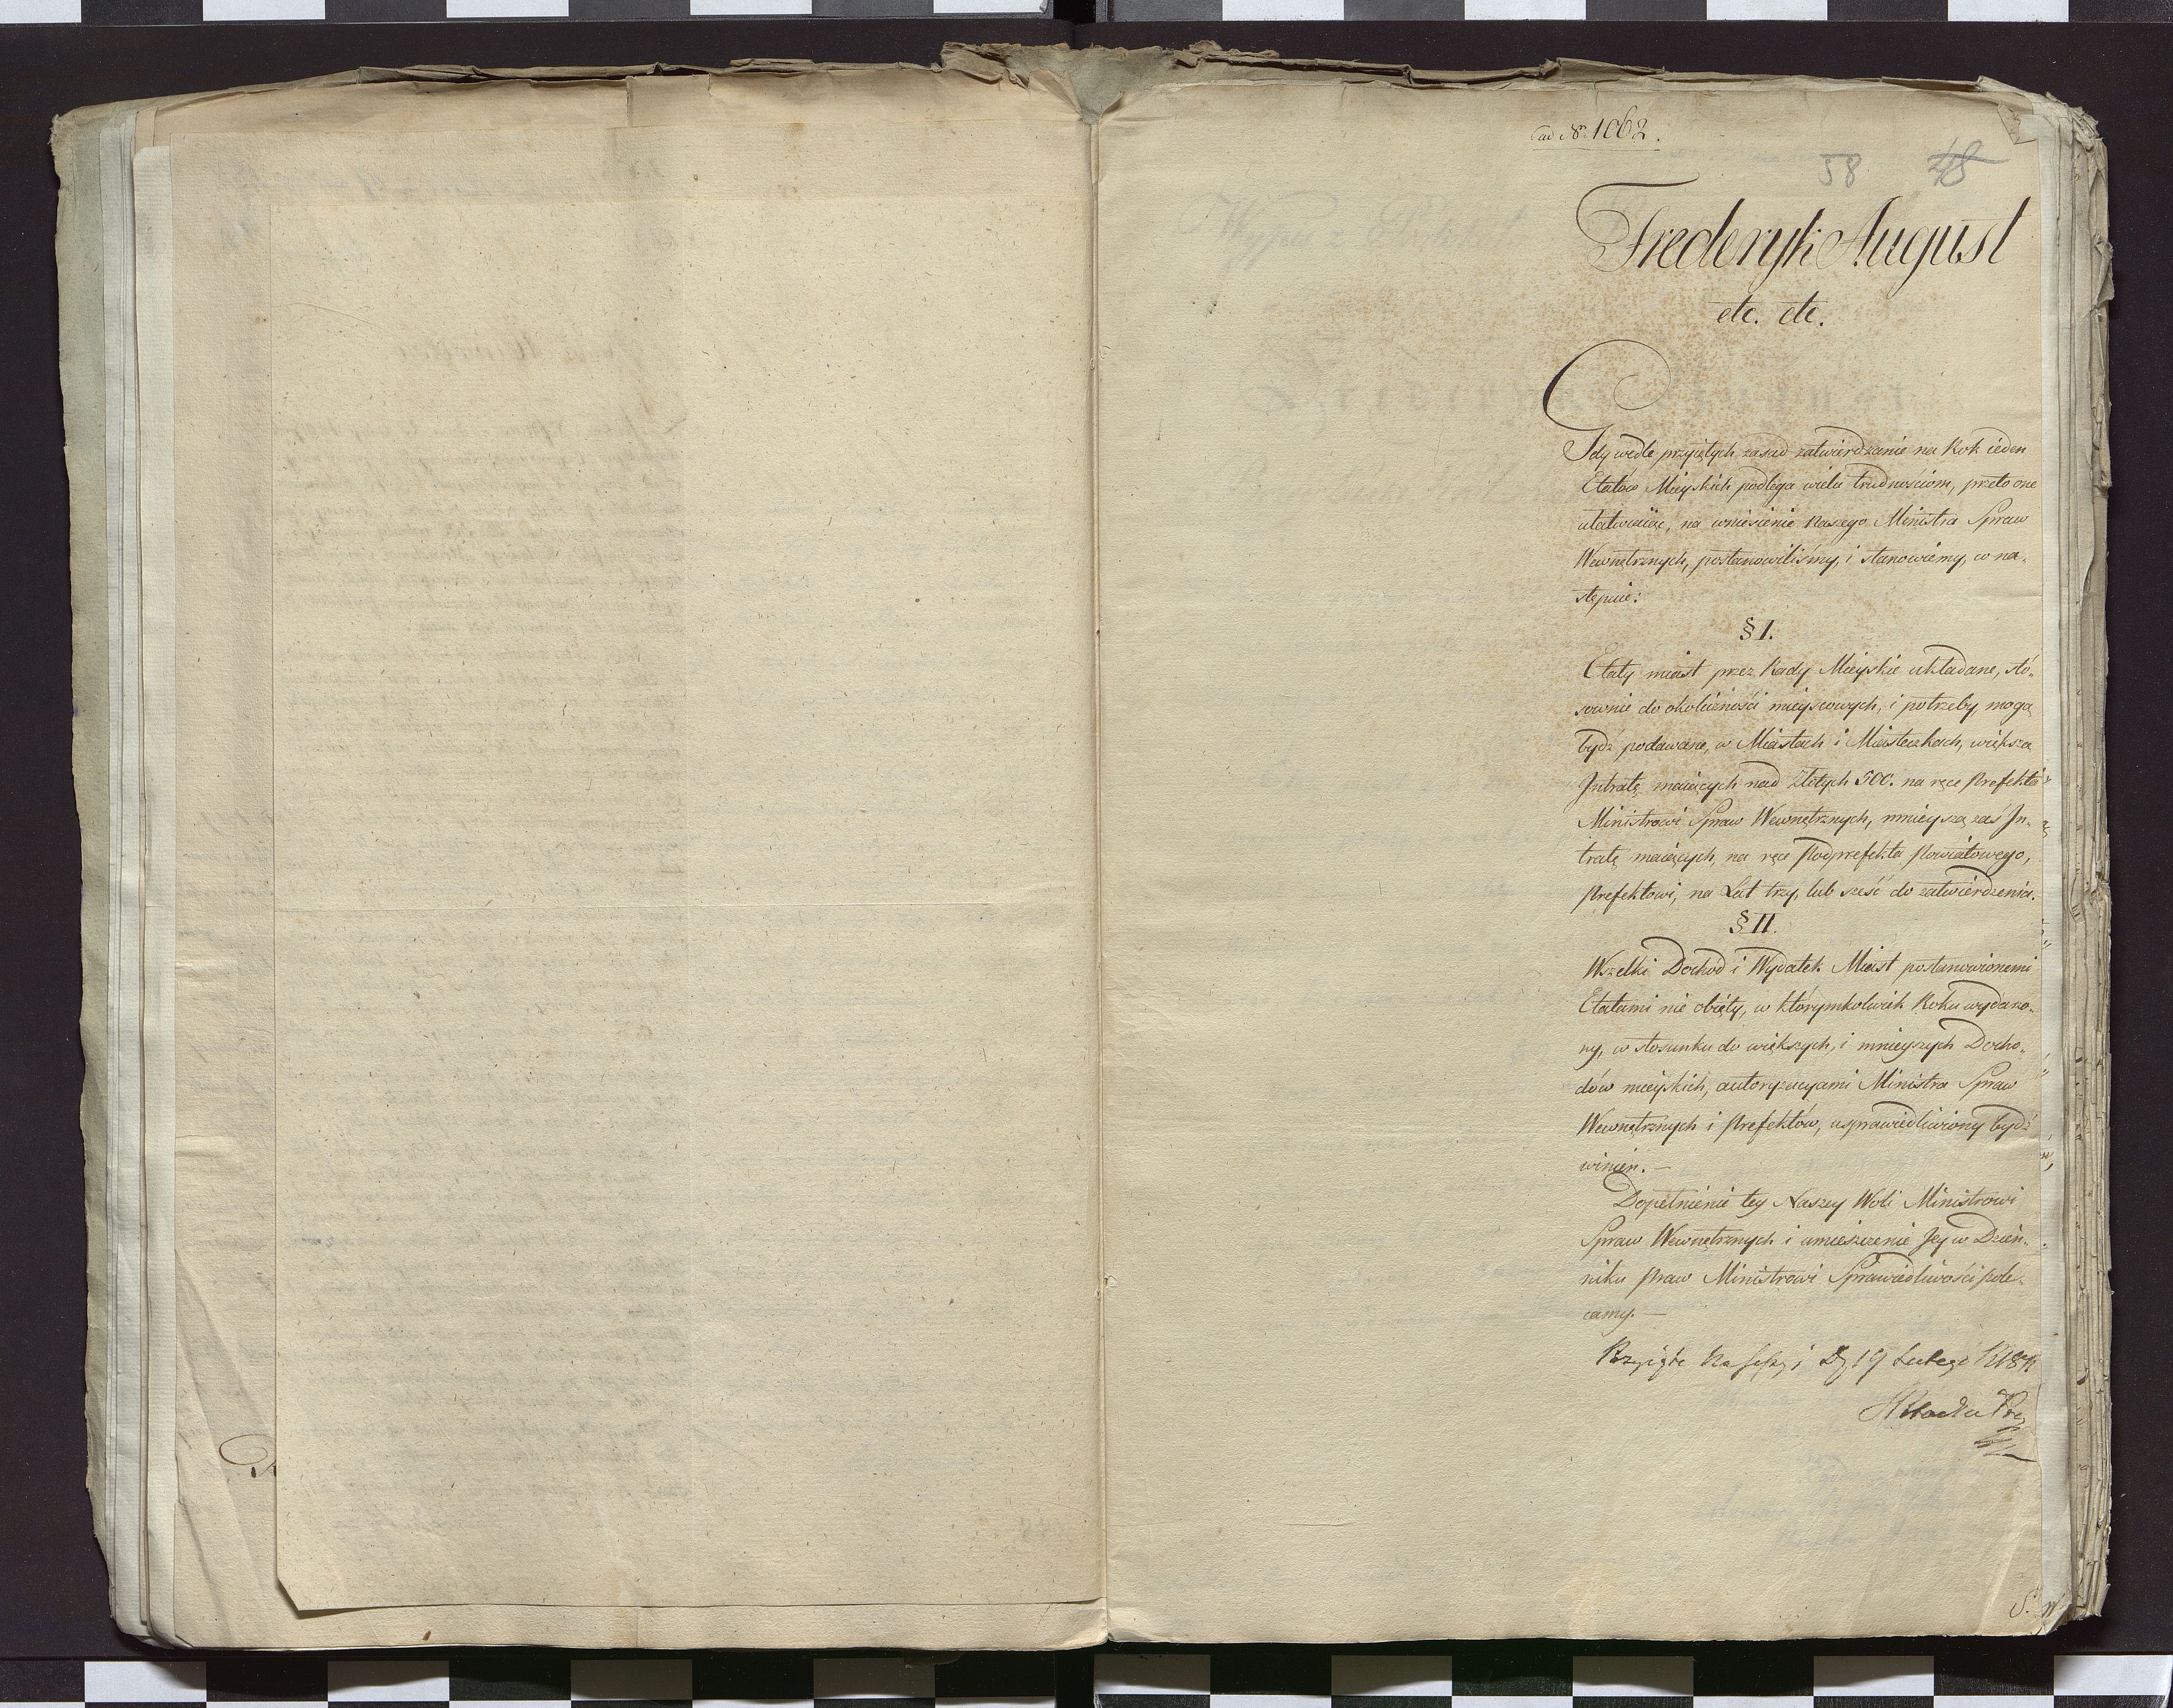 ad N° 1062.
58 48
Frederyk August
etc. etc.
Gdy wedle przyiętych zasad zatwierdzanie na Rok ieden
Etatów Mieyskich podlega wielu trudnościom, przeto one
ułatwiaiąc, na wniesienie Naszego Ministra Spraw
Wewnętrznych, postanowiliśmy, i stanowiemy, co na-
stępuie:
§ I.
Etaty miast przez Rady Mieyskie układane, sto-
sownie do okoliczności mieyscowych, i potrzeby, mogą
bydź podawane, w Miastach i Miasteczkach, większą
Intratę maiących nad Złotych 500. na ręce Prefekta
Ministrowi Spraw Wewnętrznych, mnieyszą zaś In-
tratę maiących, na ręce Podprefekta Powiatowego,
Prefektowi, na Lat trzy, lub sześć do zatwierdzenia.
§ II.
Wszelki Dochód i Wydatek Miast postanowionemi
Etatami nie obięty, w którymkolwiek Roku wydarzo-
ny, w stosunku do większych, i mnieyszych Docho-
dów mieyskich, autoryzacyami Ministra Spraw
Wewnętrznych i Prefektów, usprawiedliwiony bydź
winien. —
Dopełnienie tey Naszey Woli Ministrowi
Spraw Wewnętrznych i umieszczenie Jey w Dzien-
niku Praw Ministrowi Sprawiedliwości pole-
camy. —
Przyięte na Sessyi D. 19 Lutego
S.